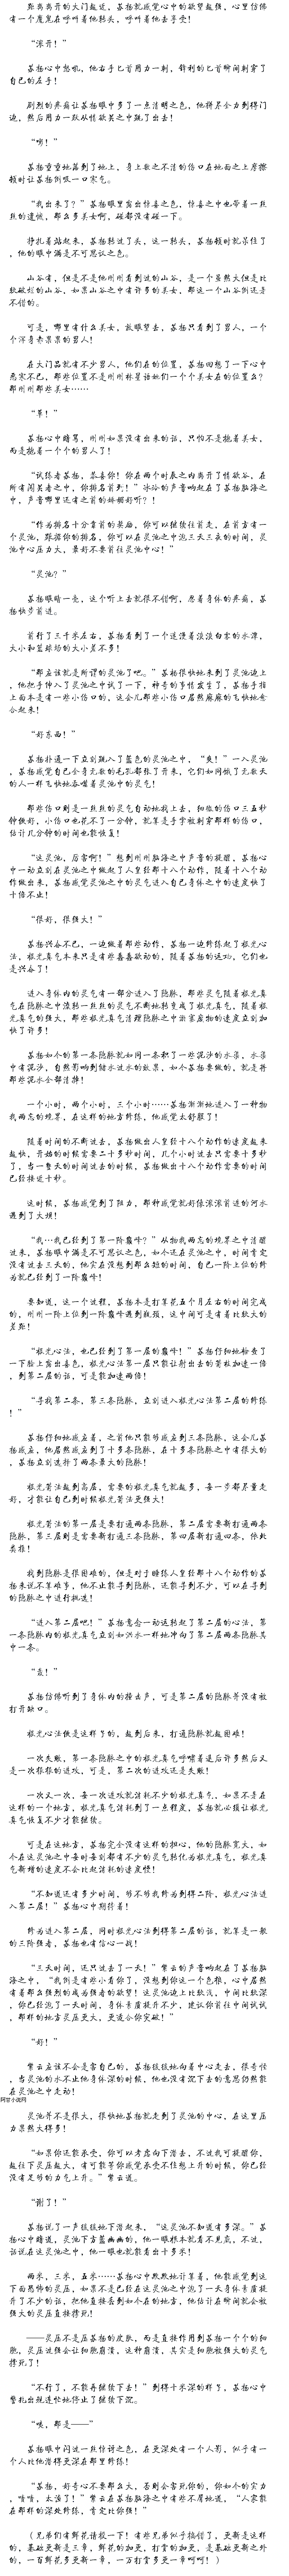 距离离开的大门越近，苏扬就感觉心中的欲望越强，心里仿佛
有一个魔鬼在呼喊着他转头，呼喊着他去享受！
“滚开！”
苏扬心中怒吼，他右手匕首用力一刺，锋利的匕首瞬间刺穿了
自己的左手！
剧烈的疼痛让苏扬眼中多了一点清明之色，他拼尽全力到得门
边，然后用力一跃从情欲谷之中跳了出去！
“嘭！”
苏扬重重地落到了地上，身上数之不清的伤口在地面之上摩擦
顿时让苏扬倒吸一口寒气。
“我出来了？”苏扬眼里露出惊喜之色，惊喜之中也带着一丝
丝的遗憾，那么多美女啊，碰都没有碰一下。
挣扎着站起来，苏扬转过了头，这一转头，苏扬顿时就呆住了
，他的眼中满是不可思议之色。
山谷有，但是不是他刚刚看到过的山谷，是一个虽然大但是比
较破烂的山谷，如果山谷之中有许多的美女，那这一个山谷倒还是
不错的。
可是，哪里有什么美女，放眼望去，苏扬只看到了男人，一个
个浑身赤果果的男人！
在大门品就有不少男人，他们在的位置，苏扬回想了一下心中
恶寒不已，那些位置不是刚刚林星语她们一个个美女在的位置么？
那刚刚那些美女……
“草！”
苏扬心中暗骂，刚刚如果没有出来的话，只怕不是抱着美女，
而是抱着一个个的男人了！
“试炼者苏扬，恭喜你！你在两个时辰之内离开了情欲谷，在
所有闯关者之中，你排名首列！”冰冷的声音响起在了苏扬脑海之
中，声音哪里还有之前的娇媚好听？！
“作为排名十分靠前的奖励，你可以继续往前走，在前方有一
个灵池，跟据你的排名，你可以在灵池之中泡三天三夜的时间，灵
池中心压力大，最好不要前往灵池中心！”
“灵池？”
苏扬眼睛一亮，这个听上去就很不错啊，忍着身体的疼痛，苏
扬快步前进。
前行了三千米左右，苏扬看到了一个迷漫着淡淡白雾的水潭，
大小和篮球场的大小差不多！
“那应该就是所谓的灵池了吧。”苏扬很快地来到了灵池边上
，他把手伸入了灵池之中试了一下，神奇的事情发生了，苏扬手指
上面本是有一些小伤口的，这会儿那些小伤口居然麻麻的飞快地愈
合起来！
“好东西！”
苏扬扑通一下立刻跳入了蓝色的灵池之中，“爽！”一入灵池
，苏扬感觉自己全身无数的毛孔都张了开来，它们如同饿了无数天
的人一样飞快地吞噬着灵池之中的灵气！
那些伤口则是一丝丝的灵气自动地找上去，细微的伤口三五秒
钟恢好，小伤口也花不了一分钟，就算是手掌被刺穿那样的伤口，
估计几分钟的时间也能恢复！
“这灵池，厉害啊！”想到刚刚脑海之中声音的提醒，苏扬心
中一动立刻在灵池之中做起了人皇经那十八个动作，随着十八个动
作做出来，苏扬感觉灵池之中的灵气进入自己身体之中的速度快了
十倍不止！
“很好，很强大！”
苏扬兴奋不已，一边做着那些动作，苏扬一边修炼起了极光心
法，极光真气本来只是有些蠢蠢欲动的，随着苏扬的运功，它们也
是兴奋了！
进入身体内的灵气有一部分进入了隐脉，那些灵气随着极光真
气在隐脉之中流转一丝丝的灵气不断地转变成了极光真气，随着极
光真气的强大，那些极光真气清理隐脉之中淤塞废物的速度立刻加
快了许多！
苏扬如今的第一条隐脉就如同一条积了一些泥沙的水渠，水渠
中有泥沙，自然影响到储水过水的效果，如今苏扬要做的，就是将
那些泥水全部清掉！
一个小时，两个小时，三个小时……苏扬渐渐地进入了一种物
我两忘的境界，在这样的地方修炼，他感觉太舒服了！
随着时间的不断过去，苏扬做出人皇经十八个动作的速度越来
越快，开始的时候需要二十多秒时间，几个小时过去只需要十多秒
了，当一整天的时间过去的时候，苏扬做出十八个动作需要的时间
已经接近十秒。
这时候，苏扬感觉到了阻力，那种感觉就好像滚滚前进的河水
遇到了大坝！
“我…我已经到了第一阶巅峰？”从物我两忘的境界之中清醒
过来，苏扬眼中满是不可思议之色，如今还在灵池之中，时间肯定
没有过去三天的，他实在没想到那么短的时间，自己一阶上位的修
为就已经到了第一阶巅峰！
要知道，这一个过程，苏扬本是打算花五个月左右的时间完成
的，刚刚一阶上位到一阶巅峰遇到瓶颈，这中间可是有着比较大的
差距！
“极光心法，也已经到了第一层的巅峰！”苏扬仔细地检查了
一下脸上露出喜色，极光心法第一层只能让射出去的剪枝加速一倍
，到第二层的话，可是能加速两倍！
“寻找第二条，第三条隐脉，立刻进入极光心法第二层的修炼
！”
苏扬仔细地感应着，之前他只能够感应到三条隐脉，这会儿苏
扬感应，他居然感应到了十多条隐脉，在十多条隐脉之中有很大的
，苏扬立刻选择了两条最大的隐脉！
极光剪法越到高层，需要的极光真气就越多，每一步都尽量走
好，才能让自己到时候极光剪法更强大！
极光剪法的第一层是要打通两条隐脉，第二层需要新打通两条
隐脉，第三层则是需要新打通三条隐脉，第四层新打通四条，依此
类推！
找到隐脉是很困难的，但是对于睡练人皇经那十八个动作的苏
扬来说不算难事，他不止能寻到隐脉，还能寻到不少，可以在寻到
的隐脉之中进行挑选！
“进入第二层吧！”苏扬意念一动运转起了第二层的心法，第
一条隐脉内的极光真气立刻如洪水一样地冲向了第二层两条隐脉其
中一条。
“轰！”
苏扬仿佛听到了身体内的撞击声，可是第二层的隐脉并没有被
打开缺口。
极光心法便是这样子的，越到后来，打通隐脉就越困难！
一次失败，第一条隐脉之中的极光真气呼啸着退后许多然后又
是一次狠狠的进攻，可是，第二次的进攻还是失败！
一次又一次，每一次进攻就消耗不少的极光真气，如果不是在
这样的一个地方，极光真气消耗到了一点程度，苏扬就必须让极光
真气恢复不少才能继续。
可是在这地方，苏扬完全没有这样的担心，他的隐脉宽大，如
今在这灵池之中每时每刻都有不少的灵气转化为极光真气，极光真
气新增的速度不会比起消耗的速度慢！
“不知道还有多少时间，够不够我修为到得二阶，极光心法进
入第二层！”苏扬心中期待着！
修为进入第二层，同时极光心法到得第二层的话，就算是一般
的三阶强者，苏扬也有信心一战！
“三天时间，还只过去了一天！”紫云的声音响起在了苏扬脑
海之中，“我倒是有些小看你了，没想到你这一个色狼，心中居然
有着那么强烈的成为强者的欲望！这灵池边上比较浅，中间比较深
，你已经泡了一天时间，身体素质提升不少，建议你前往中间试试
，那样的地方灵压更大，更适合你突破！”
“好！”
紫云应该不会是害自己的，苏扬缓缓地向着中心走去，很奇怪
，当灵池的水不止他身体深的时候，他也没有沉下去的意思仍然能
在灵池之中走动！
阿甘小说网
灵池并不是很大，很快地苏扬就走到了灵池的中心，在这里压
力果然大得多！
“如果你还能承受，你可以考虑向下潜去，不过我可提醒你，
越往下灵压越大，有可能等你感觉承受不住想上升的时候，你已经
没有足够的力气上升。”紫云道。
“谢了！”
苏扬说了一声缓缓地下潜起来，“这灵池不知道有多深。”苏
扬心中暗道，灵池下方蓝幽幽的，他一眼根本就看不见底，不过，
话说在这灵池之中，他一眼也就能看出十多米！
两米，三米，五米……苏扬心中默默地计算着，他能感觉到这
下面恐怖的灵压，如果不是已经在这灵池之中泡了一天身体素质提
升了不少的话，把他直接丢到如今在的地方，他估计在瞬间就会被
强大的灵压直接挤死！
——灵压不是压苏扬的皮肤，而是直接作用到苏扬一个个的细
胞，灵压过强会让细胞崩溃，这种崩溃，其实是细胞被强大的灵气
撑死了！
“不行了，不能再继续下去！”到得十米深的样子，苏扬心中
警兆出现连忙地停止了继续下沉。
“咦，那是——”
苏扬眼中闪过一丝惊讶之色，在更深处有一个人影，似乎有一
个人比他潜得更深在那里修炼！
“苏扬，好奇心不要那么大，否则会害死你的，你如今的实力
，啧啧，太弱了！”紫云在苏扬脑海之中有些不屑地道，“人家能
在那样的深处修炼，肯定比你强！”
（兄弟们有鲜花请投一下！有些兄弟似乎搞错了，更新是这样
的，基础更新是三章，鲜花的加更，打赏的加更，是基础更新之外
的，一百鲜花多更新一章，一万打赏多更一章呵呵！）